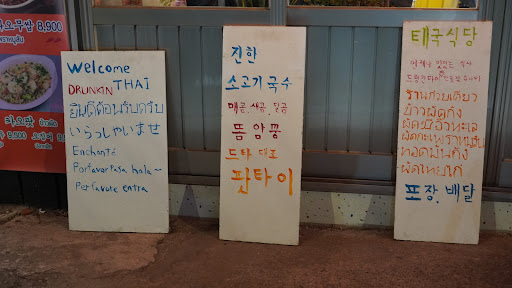 8,900
Welcome
DRUNKEN THAI
ยินดีต้อนรับครับ
いらっしゃいませ
Enchanté
Por favor pasa hala~
Per favore entra
진한
소고기 국수
매콤 새콤 달콤
똠얌꿍
드타 대표
팟타이
태국식당
ร้านก๋วยเตี๋ยว
ข้าวผัดกุ้ง
ผัดซีอิ๊วทะเล
ผัดกะเพราหมูสับ
ทอดมันกุ้ง
ผัดไทยไก่
포장, 배달